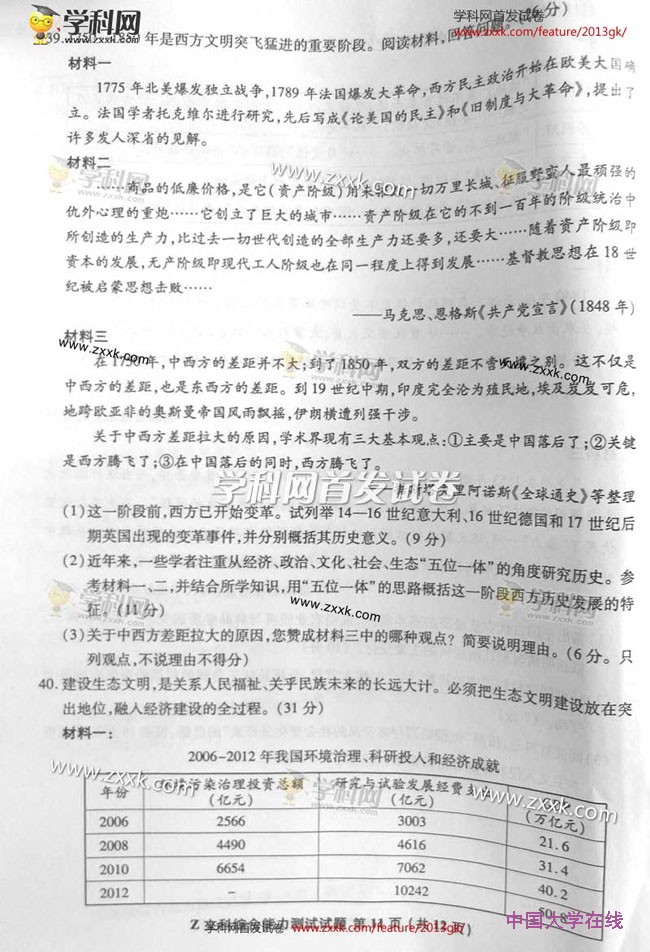 学科网 学科网首发试卷
www.zxxk.com www.zxxk.com/feature/2013gk/
39. 1750—1850 年是西方文明突飞猛进的重要阶段。阅读材料,回答问题。(26 分)
材料一
1775 年北美爆发独立战争,1789 年法国爆发大革命,西方民主政治开始在欧美大国确
立。法国学者托克维尔进行研究,先后写成《论美国的民主》和《旧制度与大革命》,提出了
许多发人深省的见解。
材料二
学科网 www.zxxk.com 学科网
……商品的低廉价格,是它(资产阶级)用来摧毁一切万里长城、征服野蛮人最顽强的
仇外心理的重炮……它创立了巨大的城市……资产阶级在它的不到一百年的阶级统治中
所创造的生产力,比过去一切世代创造的全部生产力还要多,还要大……随着资产阶级即
资本的发展,无产阶级即现代工人阶级也在同一程度上得到发展……基督教思想在 18 世
纪被启蒙思想击败……
——马克思、恩格斯《共产党宣言》(1848 年)
材料三
www.zxxk.com 学科网 www.zxxk.com
在 1750 年,中西方的差距并不大;到了 1850 年,双方的差距不啻天壤之别。这不仅是
中西方的差距,也是东西方的差距。到 19 世纪中期,印度完全沦为殖民地,埃及岌岌可危,
地跨欧亚非的奥斯曼帝国风雨飘摇,伊朗横遭列强干涉。
关于中西方差距拉大的原因,学术界现有三大基本观点:①主要是中国落后了;②关键
是西方腾飞了;③在中国落后的同时,西方腾飞了。
学科网首发试卷
里阿诺斯《全球通史》等整理
(1)这一阶段前,西方已开始变革。试列举 14—16 世纪意大利、16 世纪德国和 17 世纪后
期英国出现的变革事件,并分别概括其历史意义。(9 分)
(2)近年来,一些学者注重从经济、政治、文化、社会、生态“五位一体”的角度研究历史。参
考材料一、二,并结合所学知识,用“五位一体”的思路概括这一阶段西方历史发展的特
征。(11 分)
学科网 www.zxxk.com www.zxxk.com 学科网
(3)关于中西方差距拉大的原因,您赞成材料三中的哪种观点?简要说明理由。(6 分。只
列观点,不说理由不得分)
40. 建设生态文明,是关系人民福祉、关乎民族未来的长远大计。必须把生态文明建设放在突
出地位,融入经济建设的全过程。(31 分)
材料一:
2006-2012 年我国环境治理、科研投入和经济成就
www.zxxk.com 学科网 www.zxxk.com
年份 污染治理投资总额(亿元) 研究与试验发展经费支出(亿元) (万亿元)
2006 2566 3003 21.6
2008 4490 4616 31.4
2010 6654 7062 40.2
2012 - 10242 50.8
Z 文科综合能力测试试题 第 11 页(共 12 页)
学科网首发试卷 www.zxxk.com/feature/2013gk/
中国大学在线